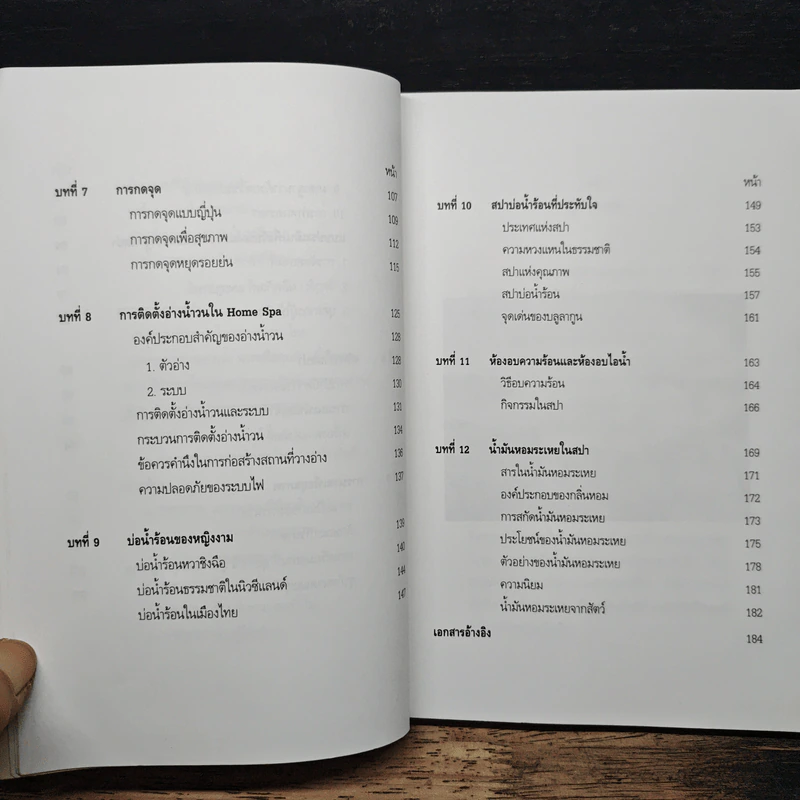 หน้า
บทที่ 7 การกดจุด 107
การกดจุดแบบญี่ปุ่น 109
การกดจุดเพื่อสุขภาพ 112
การกดจุดหยุดรอยย่น 115
บทที่ 8 การติดตั้งอ่างน้ำวนใน Home Spa 125
องค์ประกอบสำคัญของอ่างน้ำวน 128
1. ตัวอ่าง 128
2. ระบบ 130
การติดตั้งอ่างน้ำวนและระบบ 131
กระบวนการติดตั้งอ่างน้ำวน 134
ข้อควรคำนึงในการก่อสร้างสถานที่วางอ่าง 136
ความปลอดภัยของระบบไฟ 137
บทที่ 9 บ่อน้ำร้อนของหญิงงาม 139
บ่อน้ำร้อนหวาชิงฉือ 140
บ่อน้ำร้อนธรรมชาติในนิวซีแลนด์ 144
บ่อน้ำร้อนในเมืองไทย 147
หน้า
บทที่ 10 สปาบ่อน้ำร้อนที่ประทับใจ 149
ประเทศแห่งสปา 153
ความหวงแหนในธรรมชาติ 154
สปาแห่งคุณภาพ 155
สปาบ่อน้ำร้อน 157
จุดเด่นของบลูลากูน 161
บทที่ 11 ห้องอบความร้อนและห้องอบไอน้ำ 163
วิธีอบความร้อน 164
กิจกรรมในสปา 166
บทที่ 12 น้ำมันหอมระเหยในสปา 169
สารในน้ำมันหอมระเหย 171
องค์ประกอบของกลิ่นหอม 172
การสกัดน้ำมันหอมระเหย 173
ประโยชน์ของน้ำมันหอมระเหย 175
ตัวอย่างของน้ำมันหอมระเหย 178
ความนิยม 181
น้ำมันหอมระเหยจากสัตว์ 182
เอกสารอ้างอิง 184